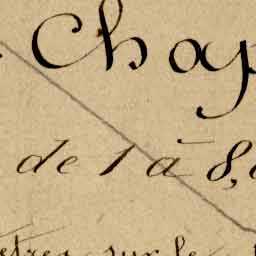 Chap
de 1 à 8,
sur le